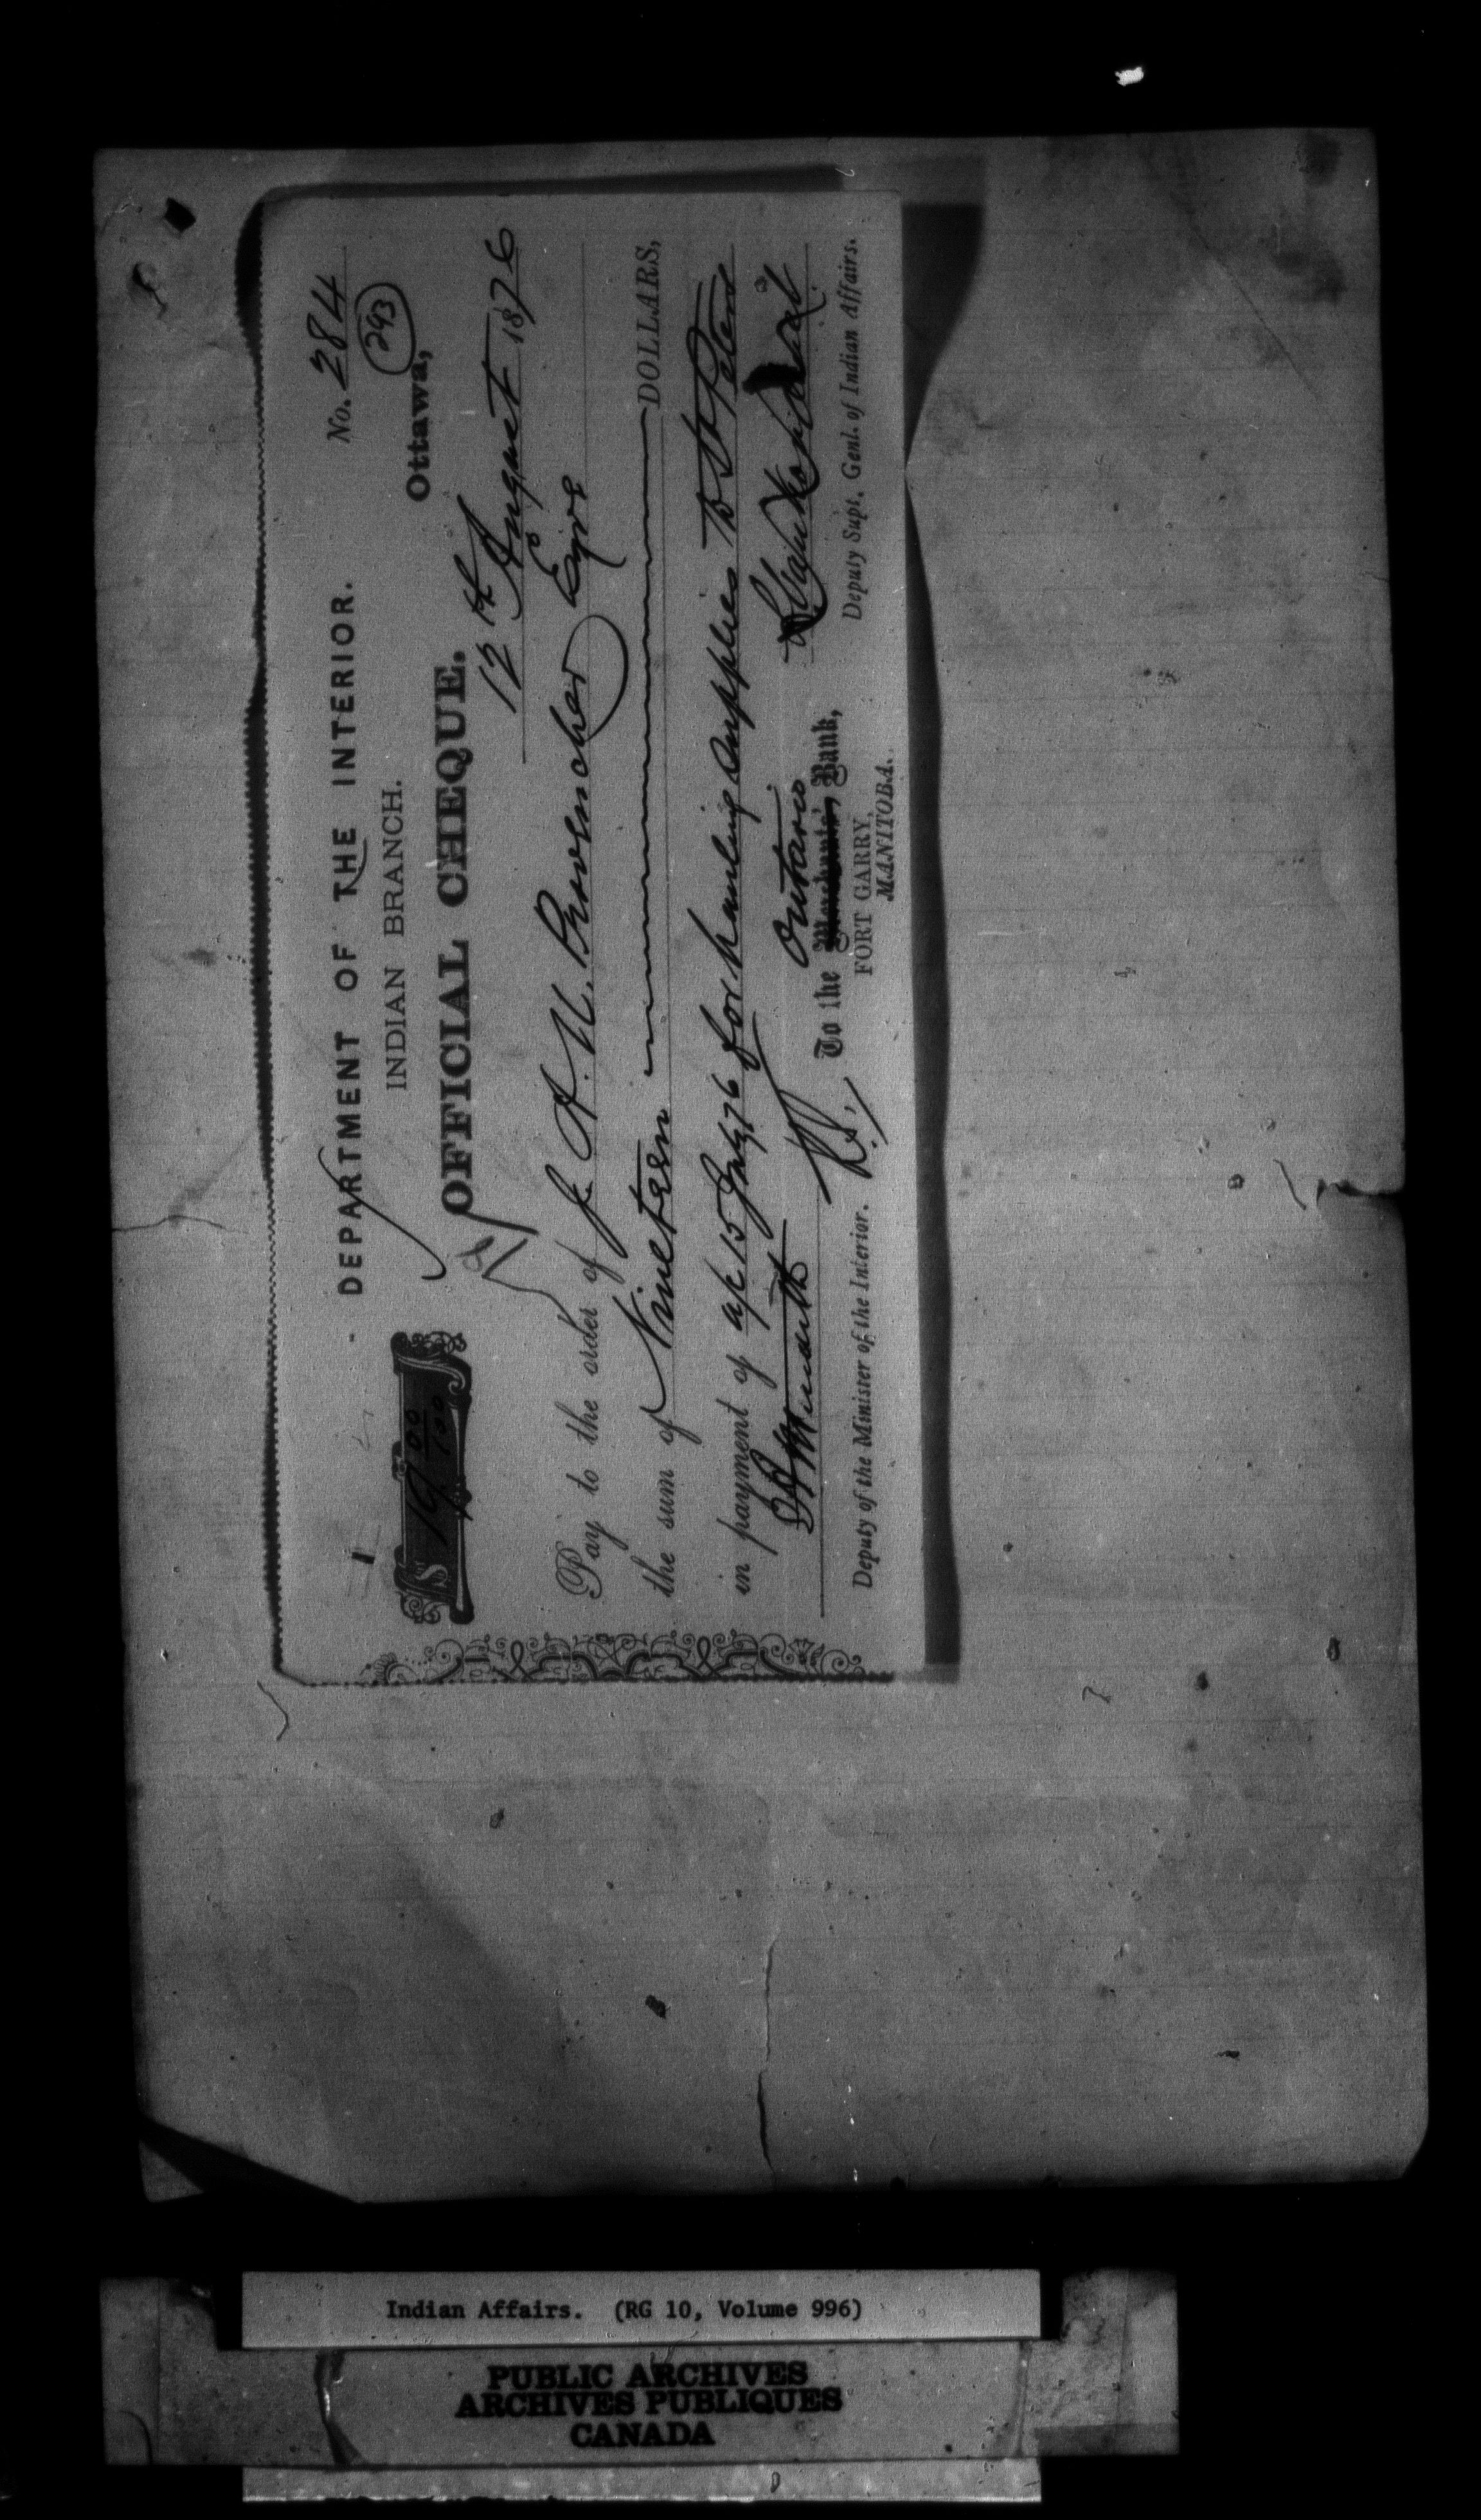 No. 284
293
DEPARTMENT OF THE INTERIOR.
INDIAN BRANCH.
Ottawa,
OFFICIAL CHEQUE.
$ 19 00/100
12th August 1876
Pay to the order of J. A. N. Provencher Esqre
the sum of Nineteen DOLLARS,
in payment of a/c 15 July 76 for hauling supplies to St Peters
Ontario
To the Merchants' Bank,
FORT GARRY,
MANITOBA.
Deputy of the Minister of the Interior.
Deputy Supt. Genl. of Indian Affairs.
Indian Affairs. (RG 10, Volume 996)
PUBLIC ARCHIVES
ARCHIVES PUBLIQUES
CANADA